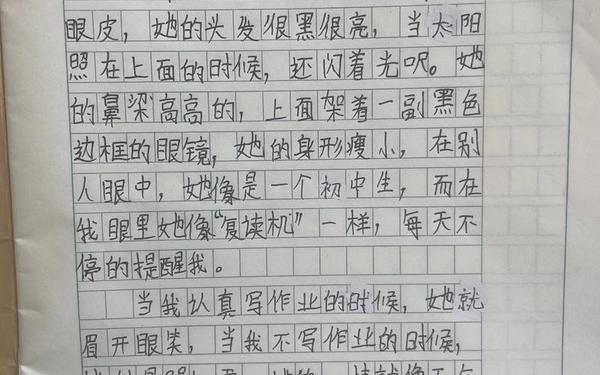 眼皮，她的头发很黑很亮，当太阳
照在上面的时候，还闪着光呢。她
的鼻梁高高的，上面架着一副黑色
边框的眼镜，她的身形瘦小，在别
人眼中，她像是一个初中生，而在
我眼里她像“复读机”一样，每天不
停的提醒我。
当我认真写作业的时候，她就
眉开眼笑，当我不写作业的时候，